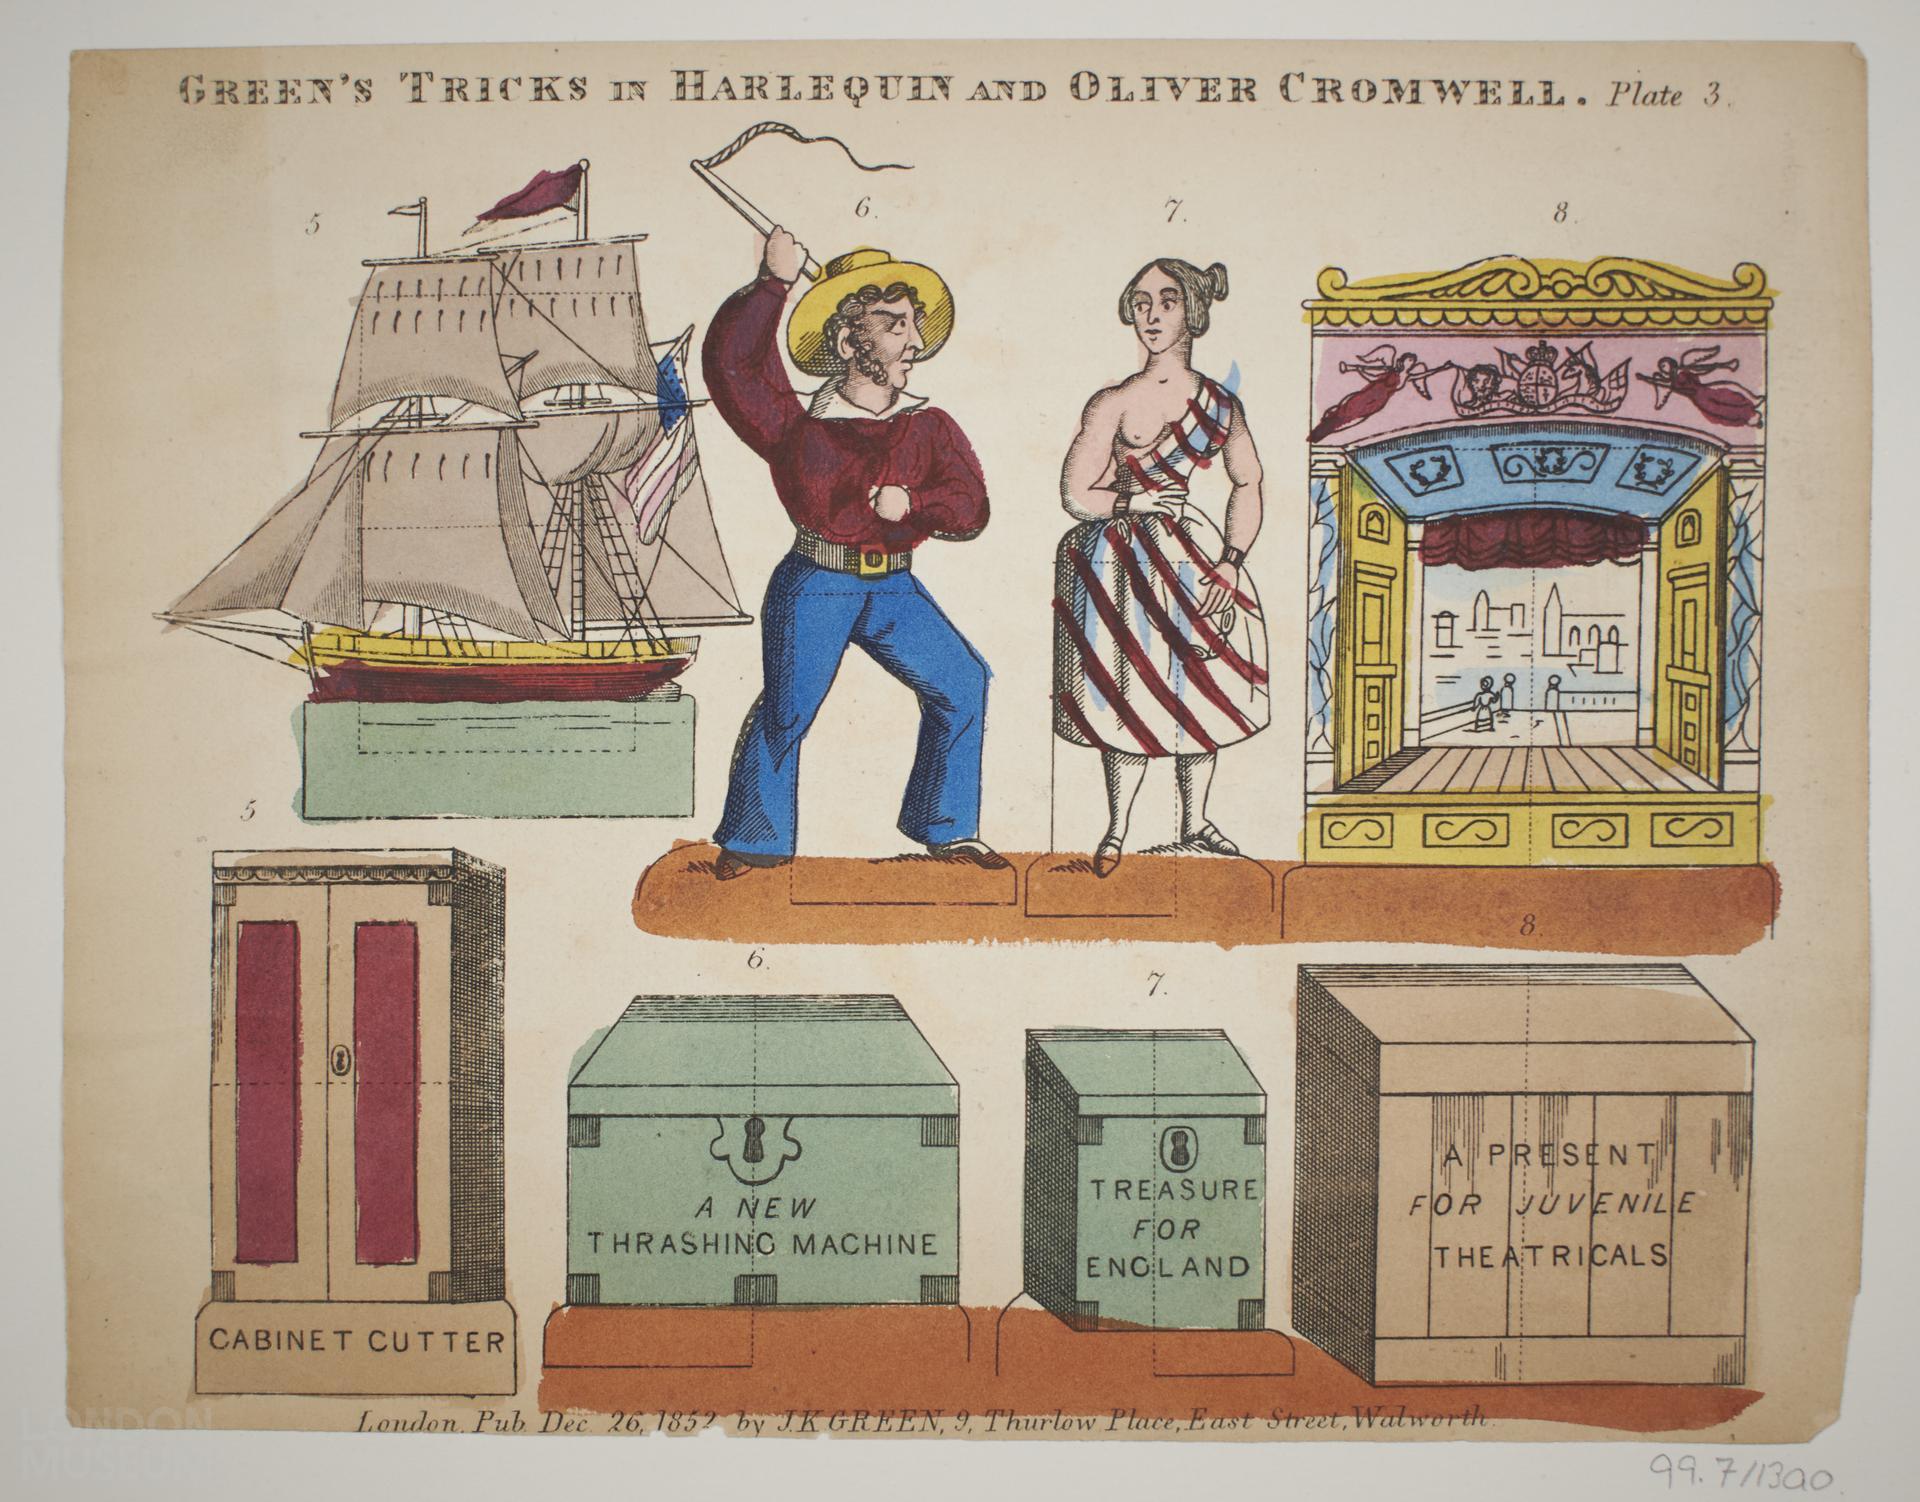 GREEN'S TRICKS IN HARLEQUIN AND OLIVER CROMWELL. Plate 3.
5
6.
7.
8.
5
6.
7.
8.
A NEW
THRASHING MACHINE
TREASURE
FOR
ENGLAND
A PRESENT
FOR JUVENILE
THEATRICALS
CABINET CUTTER
London, Pub. Dec. 26, 1852 by J.K GREEN, 9, Thurlow Place, East Street, Walworth.
LONDON
MUSEUM
99.7/13ao